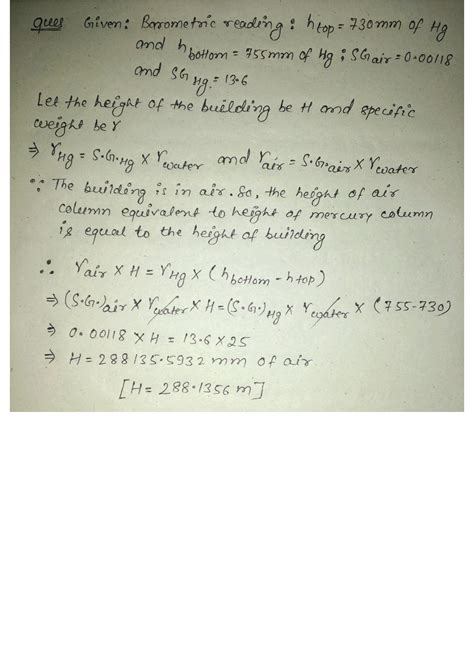 Ques Given: Barometric reading: h top = 730mm of Hg
and h bottom = 755mm of Hg ; SG air = 0.00118
and SG Hg = 13.6
Let the height of the building be H and specific
weight be γ
⇒ γ Hg = S.G. Hg × γ water and γ air = S.G. air × γ water
∵ The building is in air. So, the height of air
column equivalent to height of mercury column
is equal to the height of building
∴ γ air × H = γ Hg × (h bottom - h top)
⇒ (S.G.) air × γ water × H = (S.G.) Hg × γ water × (755-730)
⇒ 0.00118 × H = 13.6 × 25
⇒ H = 288135.5932 mm of air
[H = 288.1356 m]